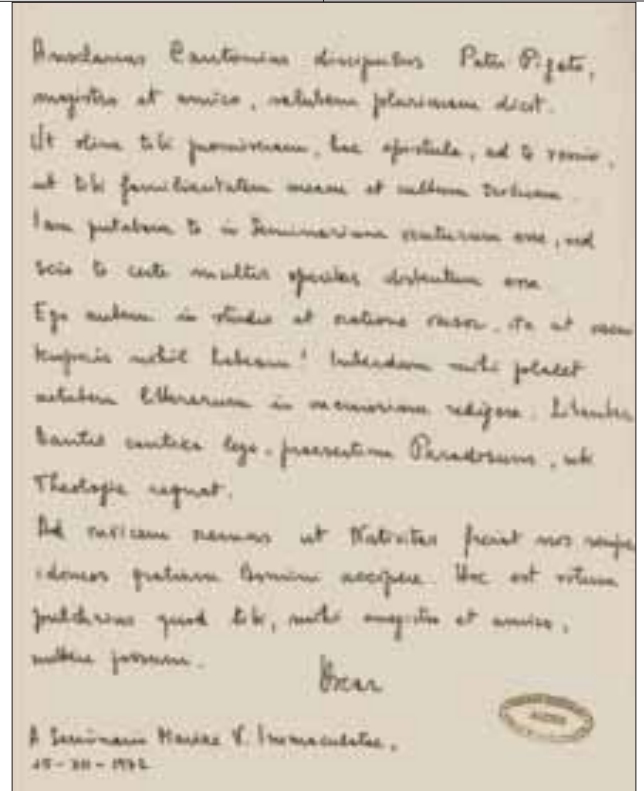 Anselmus Cantonius discipulus Petro Pigato,
magistro et amico, salutem plurimam dicit.
Ut olim tibi promiseram, hac epistula, ad te venio,
ut tibi familiaritatem meam et cultum
Iam putabam te in Seminarium venturum esse, sed
scio te certe multis operibus distentum esse.
Ego autem in studio et oratione versor, ita ut
temporis nihil habeam! Interdum mihi placet
litterarum in memoriam redigere. Libenter
Dantis cantica lego, praesertim Paradisum, ubi
Theologia regnat.
Ad invicem oremus ut Nativitas faciat nos semper
idoneos gratiam Domini accipere. Hoc est votum
pulchrius quod tibi, mihi magistro et amico,
mittere possum.
Oscar
A Seminario Mariae V. Immaculatae,
15-XII-1972